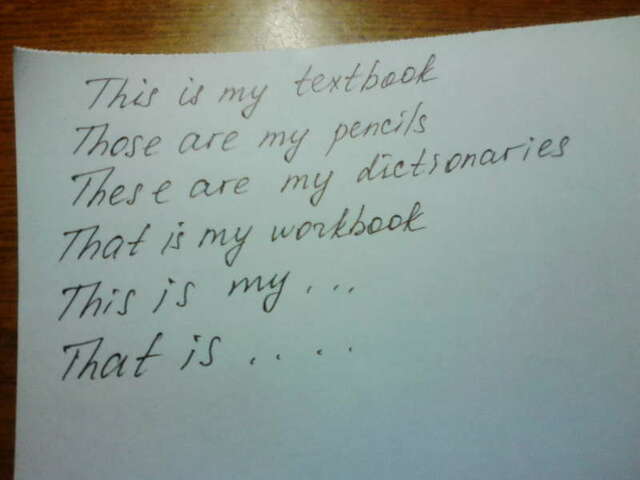 This is my textbook
Those are my pencils
These are my dictsonaries
That is my workbook
This is my ...
That is ....